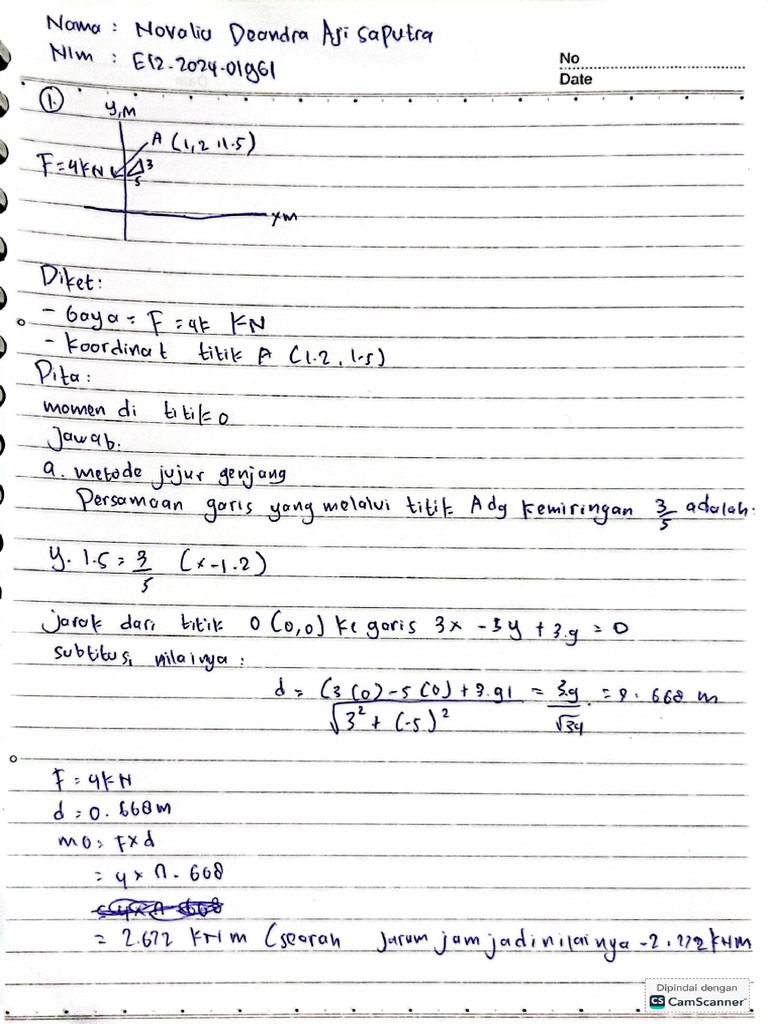 Nama : Novaliu Deandra Aji Saputra
NIM : E12.2024.01961
No
Date
1.
y,m
A (1,2 1.5)
F=4kN
3
5
x m
Diket:
- Gaya = F = 4k KN
- Koordinat titik A (1.2, 1.5)
Dita:
momen di titik 0
Jawab.
a. metode jujur genjang
Persamaan garis yang melalui titik A dg kemiringan 3/5 adalah:
y. 1.5 = 3/5 (x-1.2)
jarak dari titik 0 (0,0) ke garis 3x - 5y + 3.9 = 0
subtitusi nilainya :
d = (3 (0) - 5 (0) + 3.91 / √3² + (-5)² = 3.9 / √34 = 0.668 m
F = 4kN
d = 0.668m
mo = F x d
= 4 x 0.668
= 2.672 kNm (searah jarum jam jadi nilainya -2.272 kNm
Dipindai dengan
CS CamScanner